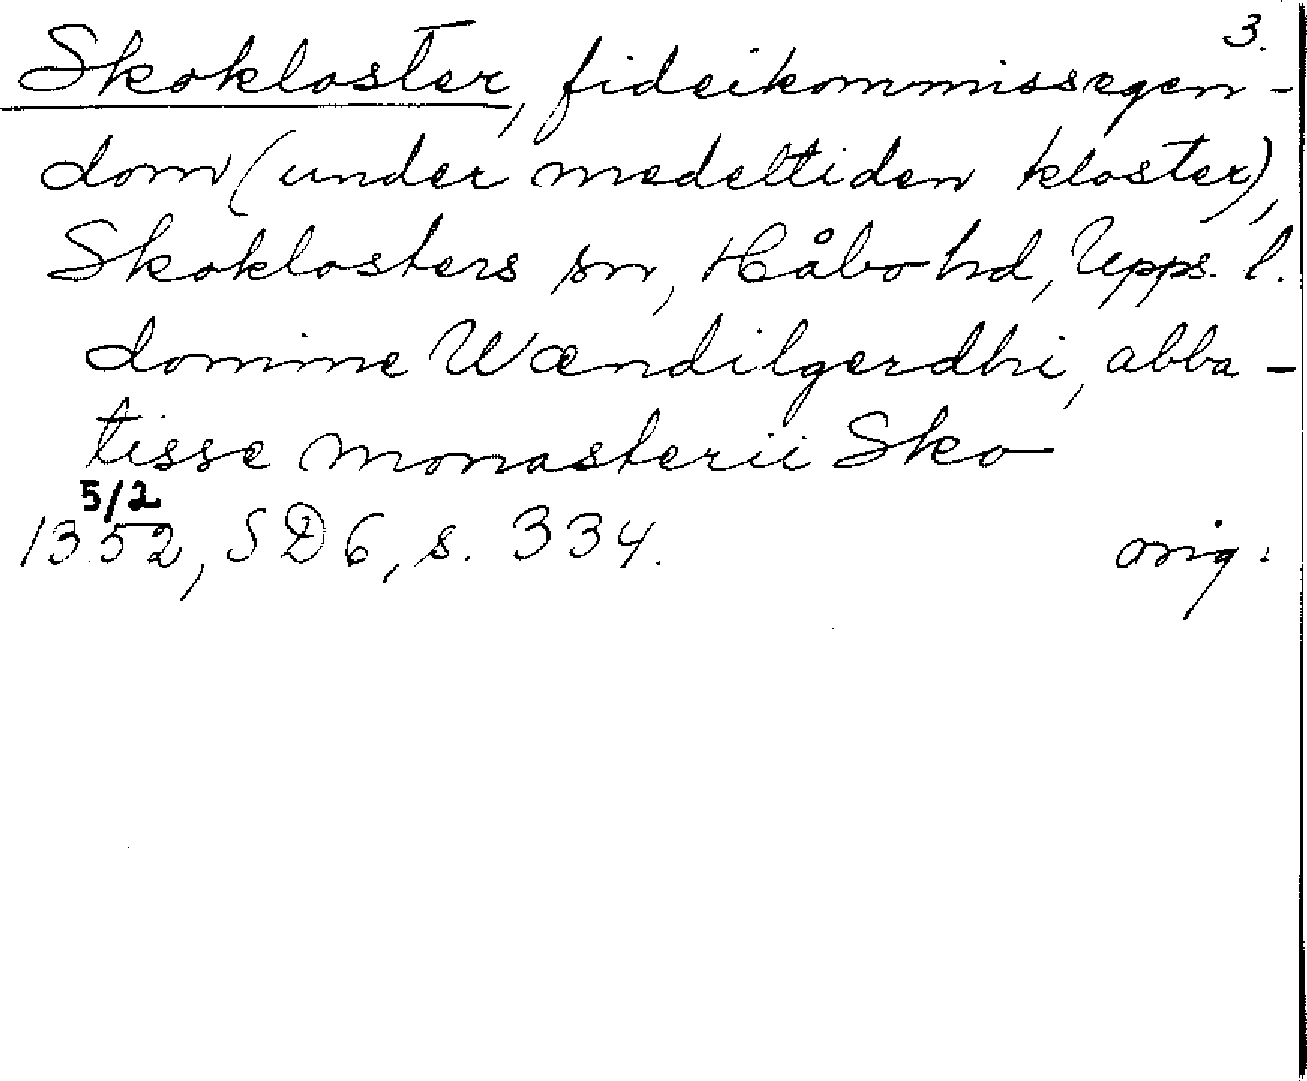 3.
Skokloster, fideikommissegen-
dom (under medeltiden kloster),
Skoklosters sn, Håbo hd, Upps. l.
domine Wændilgerdhi, abba-
tisse monasterii Sko
5/2
1352, SD 6, s. 334. orig.